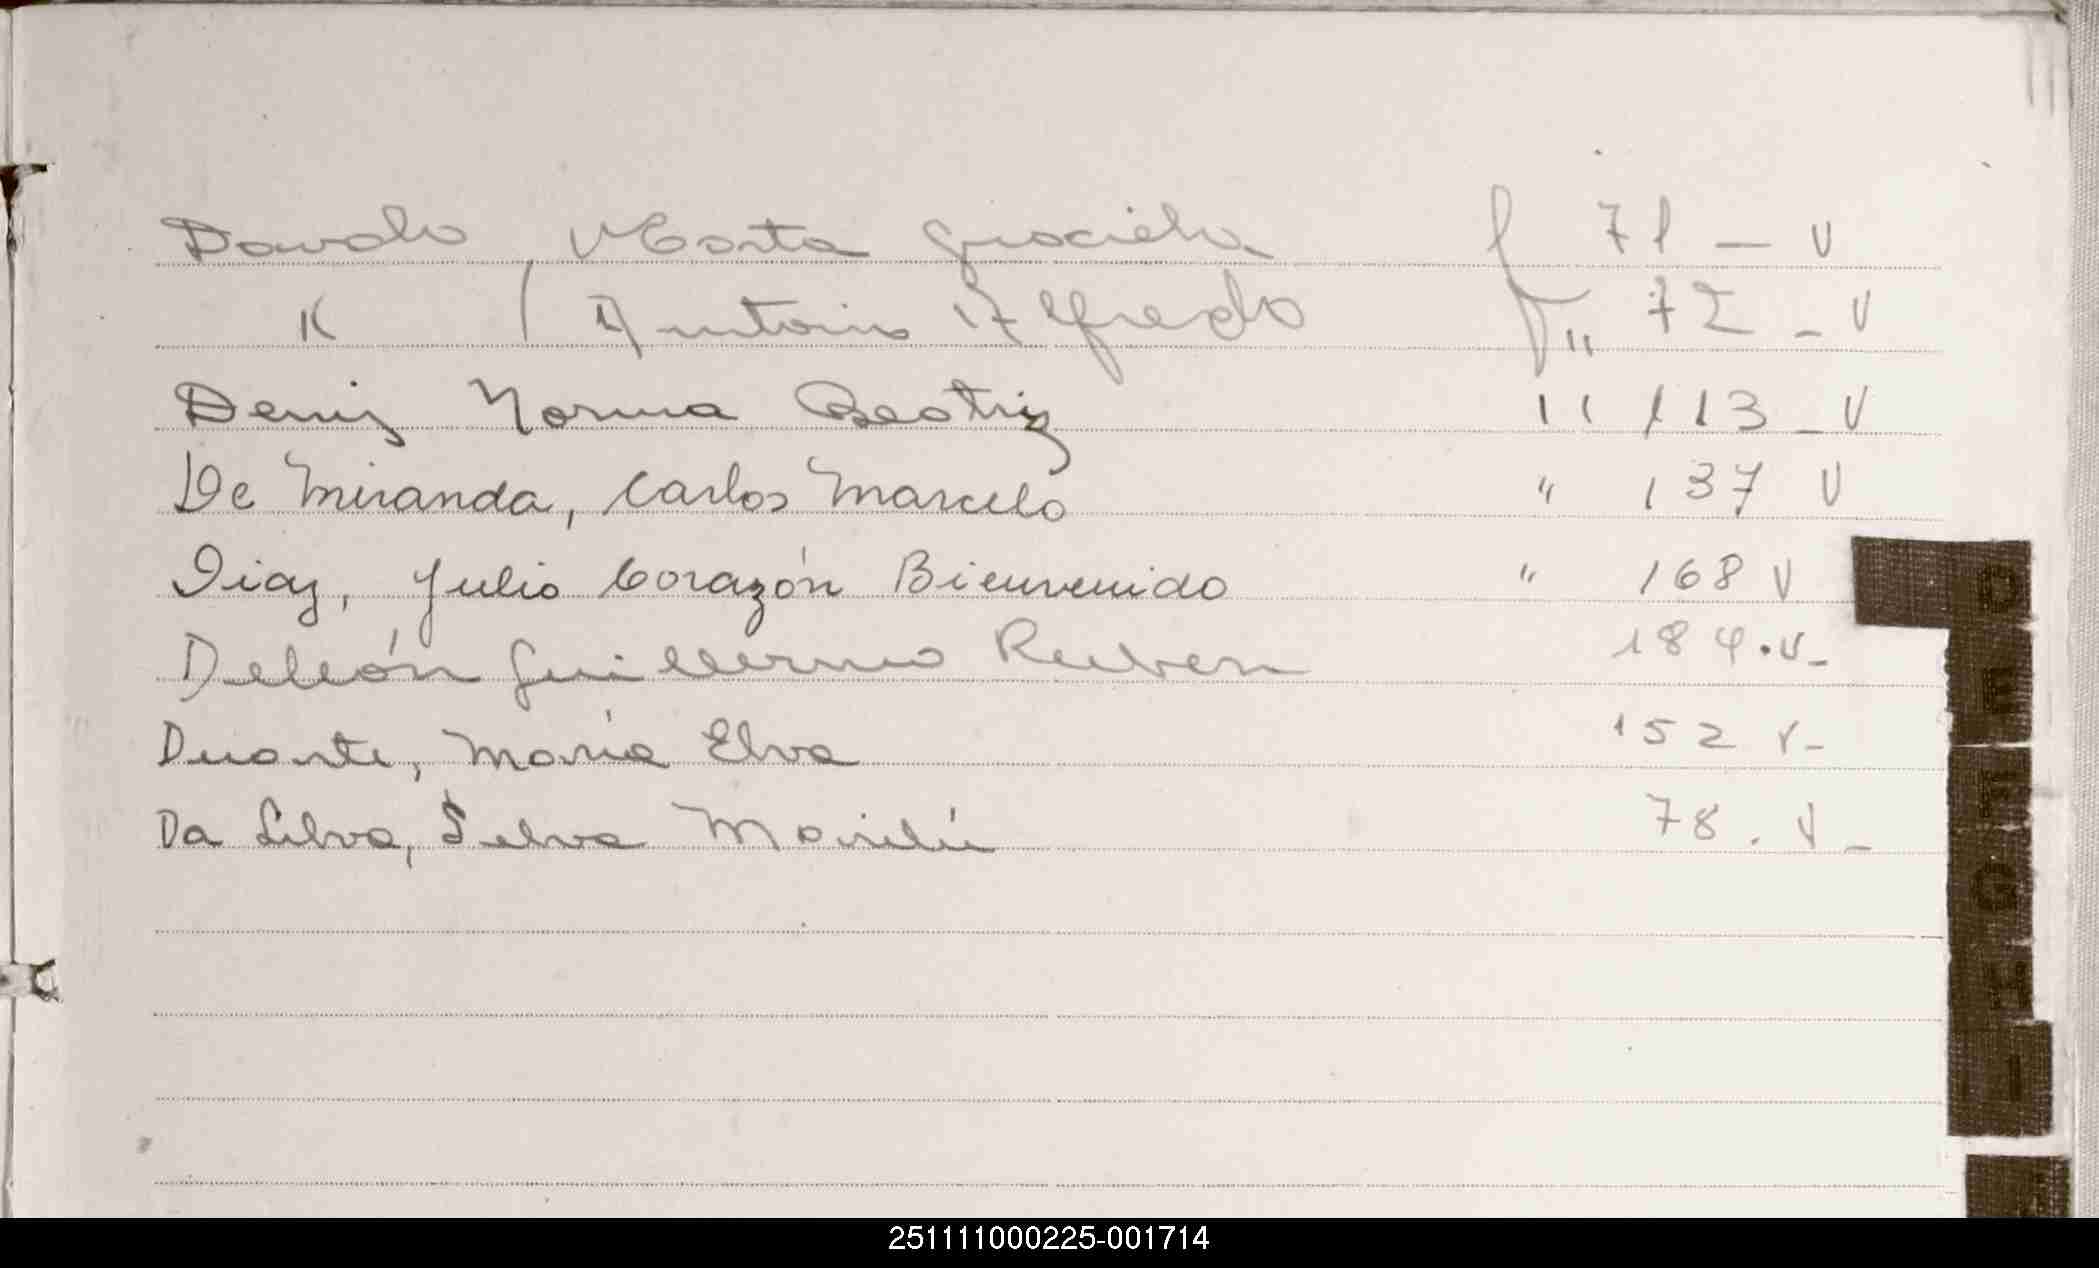 Davalo Marta Graciela f 71 – v
" / Antonio Alfredo f " 72 – v
Deniz Norma Beatriz " 113 – v
De Miranda, Carlos Marcelo " 137 v
Diaz, Julio Corazón Bienvenido " 168 v
Deleón Guillermo Ruben 184 . v –
Duarte, María Elva 152 v –
Da Silva, Selva Marilú 78 . v –
D
E
F
G
H
I
251111000225-001714